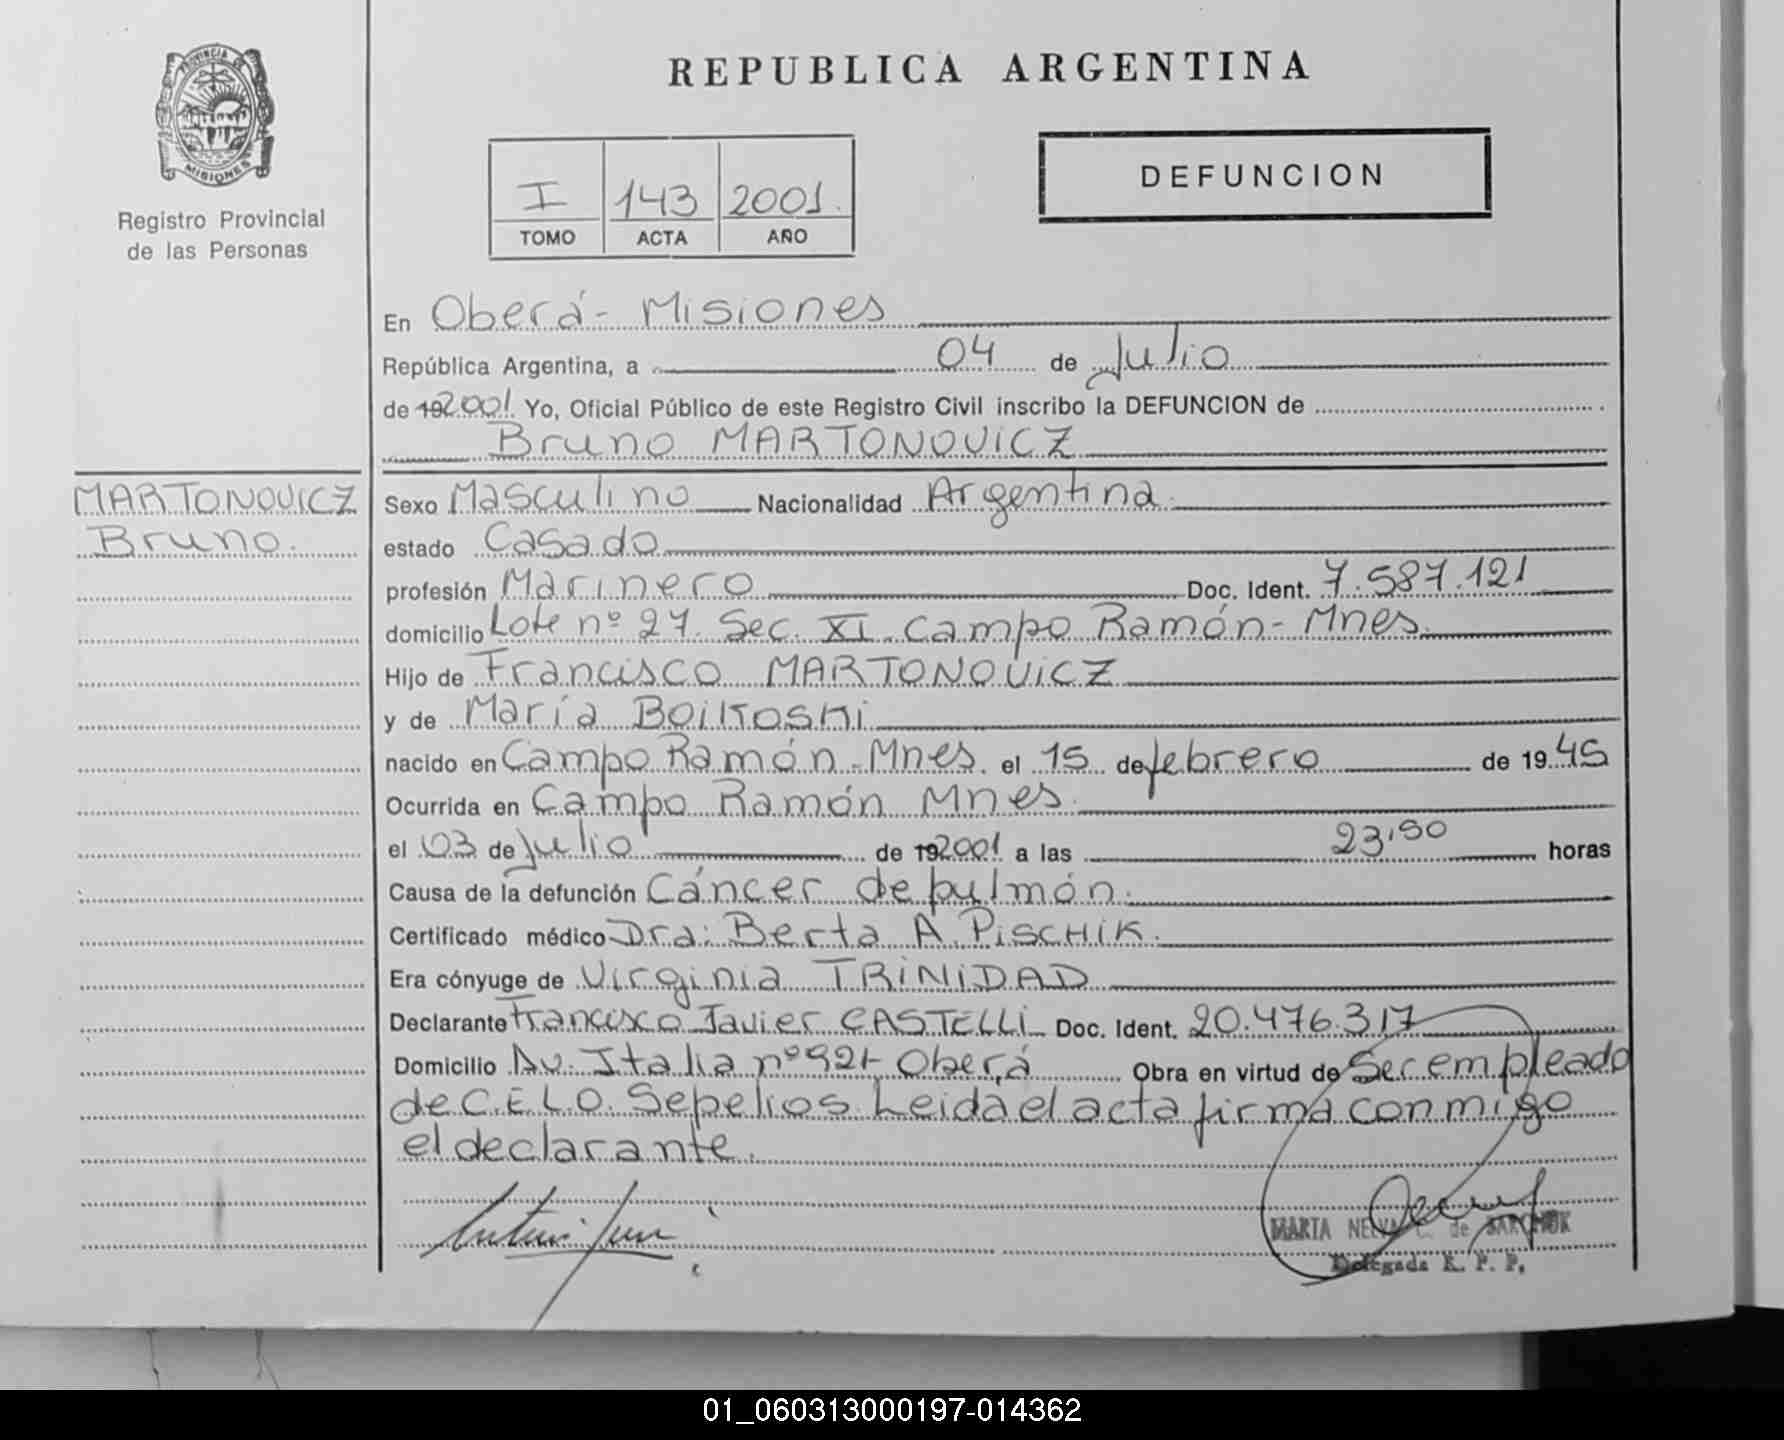 PROVINCIA DE
MISIONES
Registro Provincial
de las Personas
REPUBLICA ARGENTINA
I 143 2001.
TOMO ACTA AÑO
DEFUNCION
En Oberá - Misiones
República Argentina, a 04 de Julio
de 192001. Yo, Oficial Público de este Registro Civil inscribo la DEFUNCION de
Bruno MARTONOVICZ
MARTONOVICZ
Bruno.
Sexo Masculino Nacionalidad Argentina.
estado Casado
profesión Marinero Doc. Ident. 7.587.121
domicilio Lote nº 27. Sec. XI. Campo Ramón - Mnes.
Hijo de Francisco MARTONOVICZ
y de María BOIKOSKI
nacido en Campo Ramón - Mnes. el 15 de febrero de 1945
Ocurrida en Campo Ramón Mnes.
el 03 de Julio de 192001 a las 23,50 horas
Causa de la defunción Cáncer de pulmón.
Certificado médico Dra: Berta A. PISCHIK.
Era cónyuge de Virginia TRINIDAD
Declarante Francisco Javier CASTELLI Doc. Ident. 20.476.317
Domicilio Av. Italia nº 921 - Oberá Obra en virtud de Ser empleado
de C.E.L.O. Sepelios. Leida el acta firma conmigo
el declarante.
MARTA de SAWCHUK
Delegada R. P. P.
01_060313000197-014362